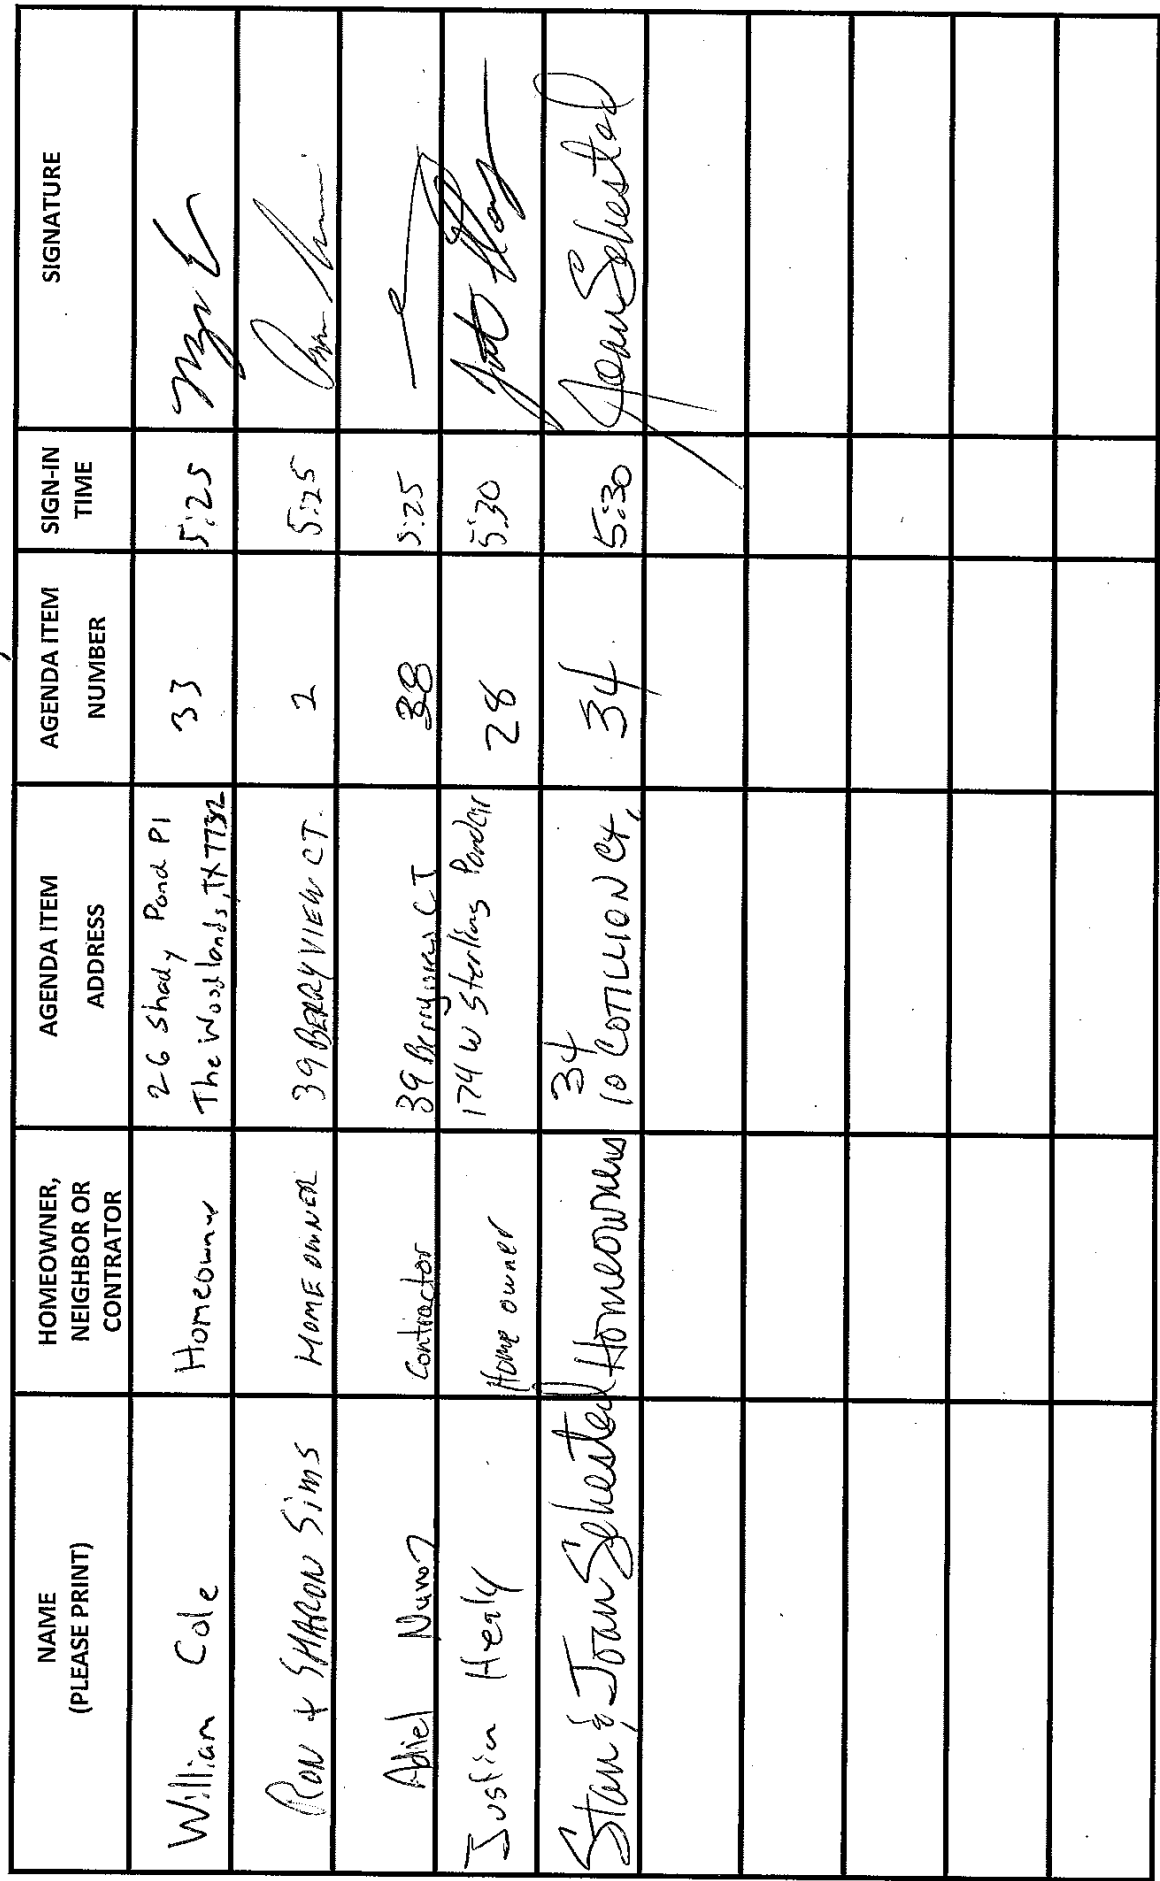 NAME
(PLEASE PRINT)
HOMEOWNER,
NEIGHBOR OR
CONTRATOR
AGENDA ITEM
ADDRESS
AGENDA ITEM
NUMBER
SIGN-IN
TIME
SIGNATURE
William Cole
Homeowner
26 Shady Pond Pl
The Woodlands, TX
33
5:25
RON + SHARON SIMS
HOME OWNER
39 BERRYVIEW CT.
2
5:25
Adiel
Contractor
39 Berryview CT
38
5:25
Justin Healy
Home owner
174 W Sterling Pond Cir
28
5:30
Stan & Joan Sehested
Homeowners
34
10 COTILLION Ct.
34
5:30
Joan Sehested